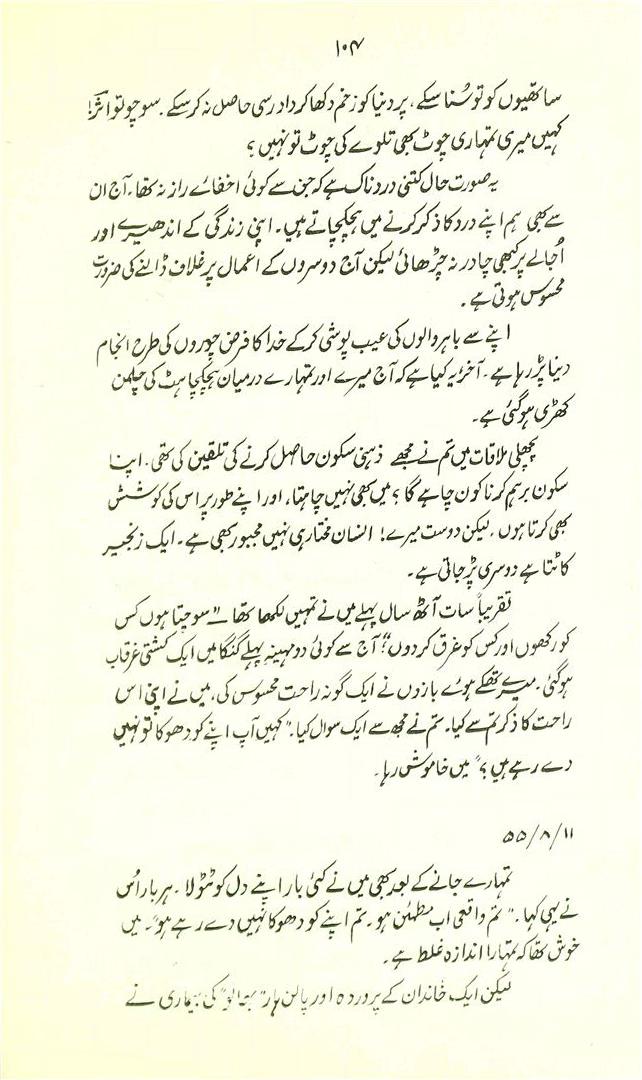 ۱۰۴
ساتھیوں کو تو سُنا سکے، پر دنیا کو زخم دکھا کر دادرسی حاصل نہ کر سکے۔ سوچو تو اثرؔ!
کہیں میری تمہاری چوٹ بھی تلوے کی چوٹ تو نہیں؟
یہ صورت حال کتنی دردناک ہے کہ جن سے کوئی اخفائے راز نہ تھا۔ آج ان
سے بھی ہم اپنے درد کا ذکر کرنے میں ہچکچاتے ہیں۔ اپنی زندگی کے اندھیرے اور
اُجالے پر کبھی چادر نہ چڑھائی لیکن آج دوسروں کے اعمال پر غلاف ڈالنے کی ضرورت
محسوس ہوتی ہے۔
اپنے سے باہر والوں کی عیب پوشی کر کے خدا کا فرض چوروں کی طرح انجام
دینا پڑ رہا ہے۔ آخر یہ کیا ہے کہ آج میرے اور تمہارے درمیان ہچکچاہٹ کی چلمن
کھڑی ہو گئی ہے۔
پچھلی ملاقات میں تم نے مجھے ذہنی سکون حاصل کرنے کی تلقین کی تھی۔ اپنا
سکون برہم کرنا کون چاہے گا؟ میں بھی نہیں چاہتا، اور اپنے طور پر اس کی کوشش
بھی کرتا ہوں، لیکن دوست میرے! انسان مختار ہی نہیں مجبور بھی ہے۔ ایک زنجیر
کاٹتا ہے دوسری پڑ جاتی ہے۔
تقریباً سات آٹھ سال پہلے میں نے تمہیں لکھا تھا "سوچتا ہوں کس
کو رکھوں اور کس کو غرق کر دوں؟" آج سے کوئی دو مہینہ پہلے گنگا میں ایک کشتی غرقاب
ہو گئی۔ میرے تھکے ہوئے بازوں نے ایک گونہ راحت محسوس کی، میں نے اپنی اس
راحت کا ذکر تم سے کیا۔ تم نے مجھ سے ایک سوال کیا۔ "کہیں آپ اپنے کو دھوکا تو نہیں
دے رہے ہیں؟" میں خاموش رہا۔
۱۱/۸/۵۵
تمہارے جانے کے بعد بھی میں نے کئی بار اپنے دل کو ٹٹولا۔ ہر بار اُس
نے یہی کہا۔ "تم واقعی اب مطمئن ہو۔ تم اپنے کو دھوکا نہیں دے رہے ہو"۔ میں
خوش تھا کہ تمہارا اندازہ غلط ہے۔
لیکن ایک خاندان کے پروردہ اور پالن ہار کی بیماری نے